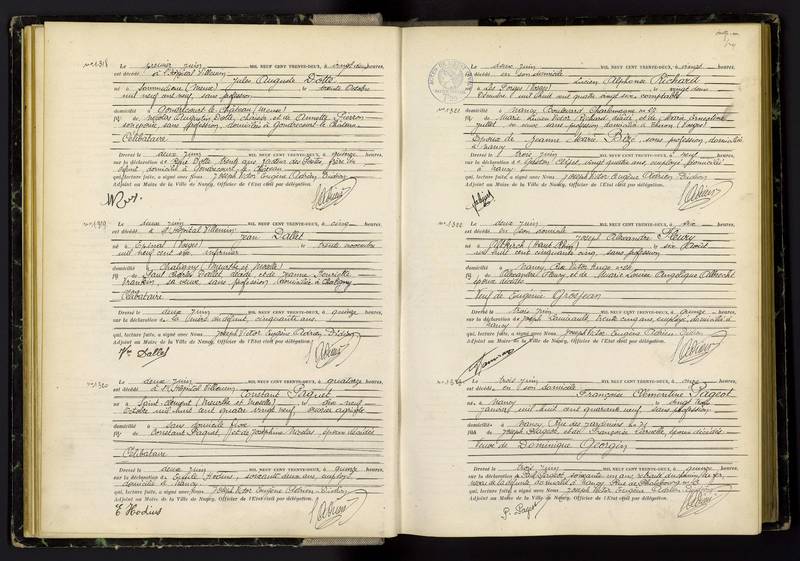 N° 1318 Le premier juin MIL NEUF CENT TRENTE-DEUX, à vingt deux heures,
est décédé à l'Hôpital Villemin
Jules Auguste Dotte
né à Sommedieue (Meuse) le trente Octobre
mil neuf cent neuf, sans profession
domicilié à Gondrecourt le Château (Meuse)
fils de Nicolas Augustin Dotte, et de Annette Pierron
son épouse, sans profession, domiciliés à Gondrecourt le Château
Célibataire
Dressé le deux juin MIL NEUF CENT TRENTE-DEUX, à quinze heures,
sur la déclaration de Dotte, trente ans, facteur des Postes, frère du
défunt domicilié à Gondrecourt le Château
qui, lecture faite, a signé avec Nous Joseph Victor Eugène Adrien Didion
Adjoint au Maire de la Ville de Nancy, Officier de l'État civil par délégation.
N° 1319 Le deux juin MIL NEUF CENT TRENTE-DEUX, à cinq heures,
est décédé à l'Hôpital Villemin
Jean Dallet
né à Epinal (Vosges) le trente novembre
mil neuf cent six, infirmier
domicilié à Chaligny (Meurthe et Moselle)
fils de Paul Charles Dallet décédé et de Jeanne Henriette
sa veuve, sans profession, domiciliée à Chaligny
Célibataire
Dressé le deux juin MIL NEUF CENT TRENTE-DEUX, à quinze heures,
sur la déclaration de la mère du défunt, cinquante ans
qui, lecture faite, a signé avec Nous Joseph Victor Eugène Adrien Didion
Adjoint au Maire de la Ville de Nancy, Officier de l'État civil par délégation.
Vve Dallet
N° 1320 Le deux juin MIL NEUF CENT TRENTE-DEUX, à quatorze heures,
est décédé à l'Hôpital Villemin
Constant Paquet
né à Saint-Clément (Meurthe et Moselle) le dix neuf
Octobre mil huit cent quatre vingt neuf, ouvrier agricole
sans domicile fixe
fils de Constant Paquet et de Joséphine Nicolas, époux décédés
Célibataire
Dressé le deux juin MIL NEUF CENT TRENTE-DEUX, à quinze heures,
sur la déclaration de Emile Hodius, soixante deux ans, employé
domicilié à Nancy
qui, lecture faite, a signé avec Nous Joseph Victor Eugène Adrien Didion
Adjoint au Maire de la Ville de Nancy, Officier de l'État civil par délégation.
E Hodius
Le deux juin MIL NEUF CENT TRENTE-DEUX, à vingt heures,
est décédé en son domicile
Lucien Alphonse Richard
N° 1321
né à Les Forges (Vosges) le vingt deux
Décembre mil huit cent quatre vingt six, comptable
domicilié à Nancy, Boulevard Charlemagne n° 27
fils de Marie Lucien Victor Richard décédé et de Marie
sa veuve sans profession domiciliée à (Vosges)
Epoux de Jeanne Marie Bizé, sans profession, domiciliée
à Nancy
Dressé le trois juin MIL NEUF CENT TRENTE-DEUX, à neuf heures,
sur la déclaration de Gaston vingt ans, employé, domicilié
à Nancy
qui, lecture faite, a signé avec Nous Joseph Victor Eugène Adrien Didion
Adjoint au Maire de la Ville de Nancy, Officier de l'État civil par délégation.
N° 1322 Le deux juin MIL NEUF CENT TRENTE-DEUX, à dix heures,
est décédé en son domicile
Joseph Alexandre Fleury
né à Altkirch (Haut Rhin) le six Août
mil huit cent cinquante cinq, sans profession
domicilié à Nancy, Rue Victor Hugo
fils de Alexandre Fleury et de Marie Louise Angélique Albrecht
époux décédés
Veuf de Eugénie Grosjean
Dressé le trois juin MIL NEUF CENT TRENTE-DEUX, à quinze heures,
sur la déclaration de Joseph trente cinq ans, employé, domicilié à
Nancy
qui, lecture faite, a signé avec Nous Joseph Victor Eugène Adrien Didion
Adjoint au Maire de la Ville de Nancy, Officier de l'État civil par délégation.
Le trois juin MIL NEUF CENT TRENTE-DEUX, à onze heures,
est décédée en son domicile
Françoise Clémentine Pageot
née à Nancy le vingt trois
janvier mil huit cent quarante neuf, sans profession
domiciliée à Nancy, Rue des Jardiniers n° 21
fille de Joseph Pageot et de Françoise époux décédés
Veuve de Dominique Georgin
Dressé le trois juin MIL NEUF CENT TRENTE-DEUX, à quinze heures,
sur la déclaration de soixante un ans, retraité du chemin de fer,
neveu de la défunte, domicilié à Nancy, Rue de Phalsbourg
qui, lecture faite, a signé avec Nous Joseph Victor Eugène Adrien Didion
Adjoint au Maire de la Ville de Nancy, Officier de l'État civil par délégation.